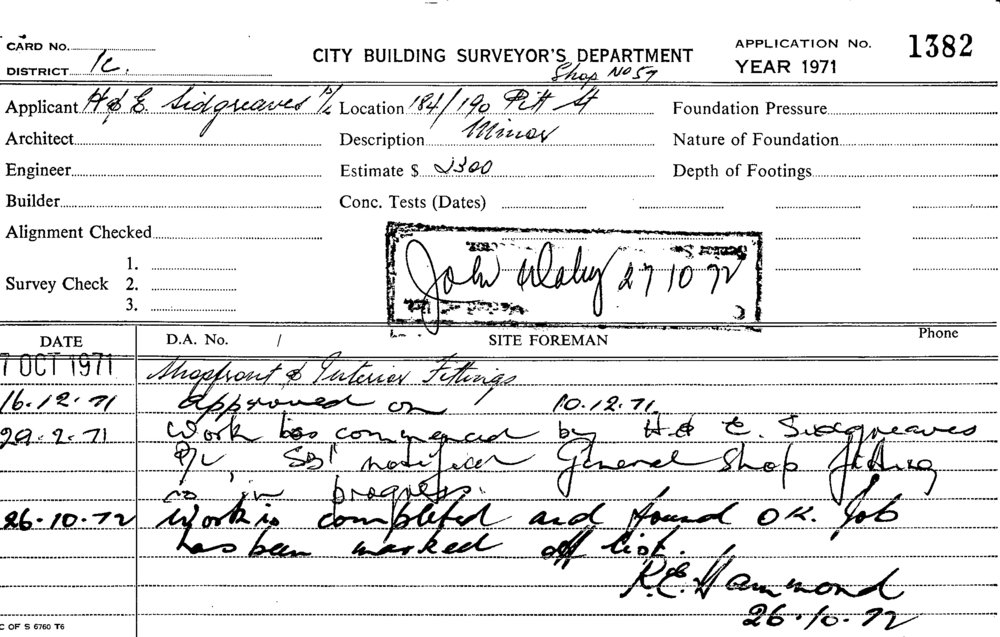 CARD No.
DISTRICT 1c.
CITY BUILDING SURVEYOR'S DEPARTMENT
APPLICATION No. 1382
YEAR 1971
Shop No 57
Applicant H & E. Sidgreaves P/L
Location 184/190 Pitt St
Foundation Pressure
Architect
Description Minor
Nature of Foundation
Engineer
Estimate $ 2300
Depth of Footings
Builder
Conc. Tests (Dates)
Alignment Checked
Survey Check
1.
2.
3.
John 27 10 72
DATE
D.A. No. /
SITE FOREMAN
Phone
7 OCT 1971
Shopfront & Interior Fittings
16.12.71 Approved on 10.12.71.
29.2.71 Work has commenced by H & E. Sidgreaves
P/L, notified General Shop fitting
in progress.
26.10.72 Work is completed and found OK. Job
has been marked off list.
R.E. Hammond
26.10.72
C OF S 6760 T6